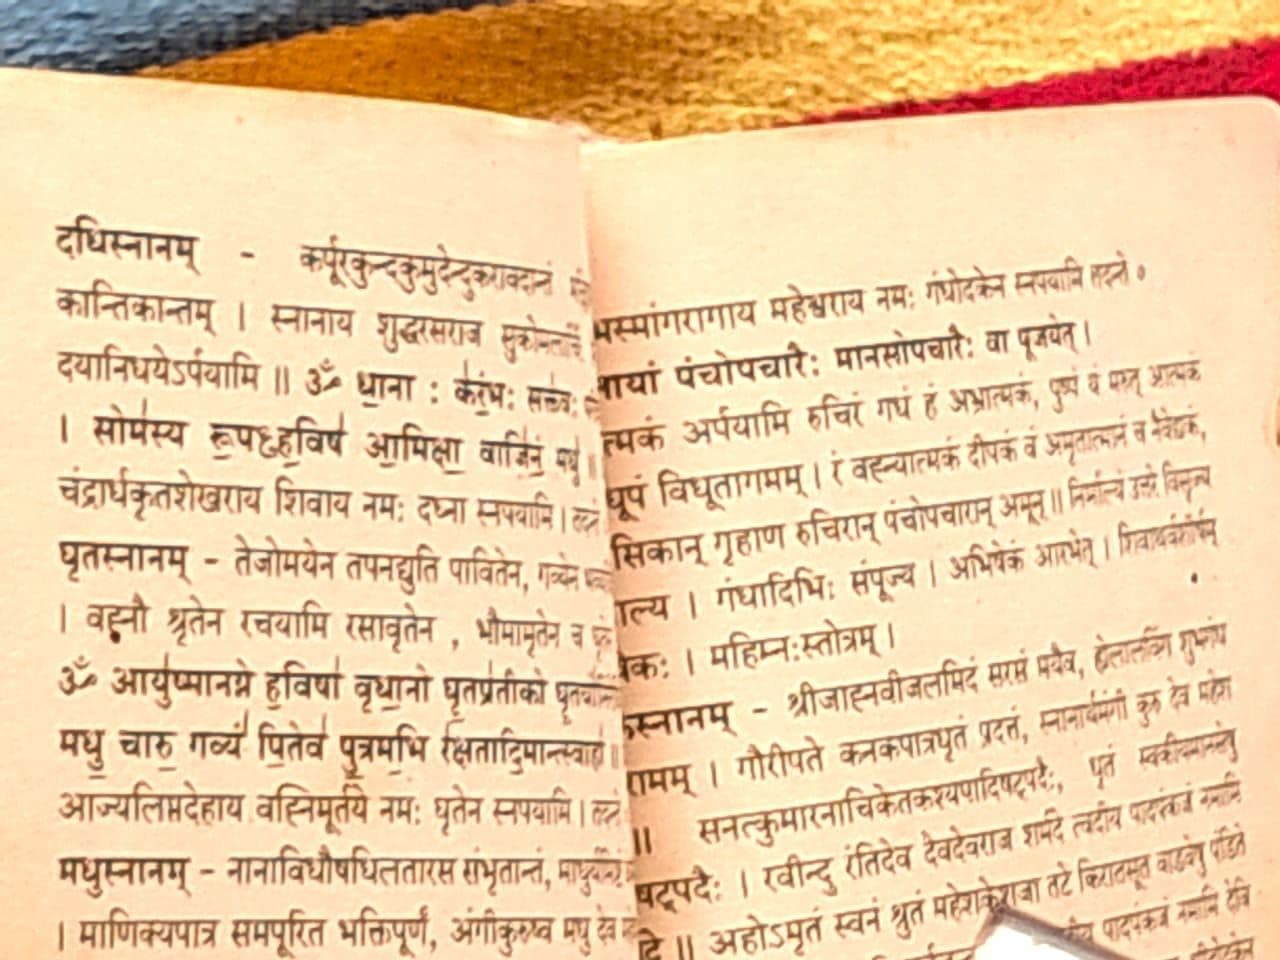 दधिस्नानम् - कर्पूरकुन्दकुमुदेन्दुकरावदातं
कान्तिकान्तम् । स्नानाय शुद्धरसराज
दयानिधयेऽर्पयामि ॥ ॐ धा॒ना : क॑रं॒भः सक्त॑वः
। सोम॑स्य रू॒पꣳह॒विष॑ आ॒मिक्षा॒ वाजि॑नं॒ मधु॑ ॥
चंद्रार्धकृतशेखराय शिवाय नमः दध्ना स्नपयामि ।
घृतस्नानम् - तेजोमयेन तपनद्युति पावितेन, गव्येन
। वह्नौ श्रृतेन रचयामि रसावृतेन , भौमामृतेन च
ॐ आयु॑ष्मानग्ने ह॒विषा॑ वृधा॒नो घृ॒तप्र॑तीको
मधु॒ चारु॒ गव्यं॑ पि॒तेव॑ पु॒त्रम॒भि र॑क्षतादि॒मान्त्स्वाहा॑ ॥
आज्यलिप्तदेहाय वह्निमूर्तये नमः घृतेन स्नपयामि ।
मधुस्नानम् - नानाविधौषधिलतारस संभृतान्तं,
। माणिक्यपात्र समपूरित भक्तिपूर्णं, अंगीकुरुष्व मधु देव
भस्मांगरागाय महेश्वराय नमः गंधोदकेन स्नपयामि तदन्ते ०
पंचोपचारैः मानसोपचारैः वा पूजयेत् ।
त्मकं अर्पयामि रुचिरं गधं हं अभ्रात्मकं, पुष्पं यं मरुत् आत्मकं
धूपं विधूतागमम् । रं वह्न्यात्मकं दीपकं वं अमृतात्मानं च नैवेद्यकं,
सिकान् गृहाण रुचिरान् पंचोपचारान् अमून् ॥ निर्माल्यं उत्तरे विसृज्य
। गंधादिभिः संपूज्य । अभिषेकं आरभेत् ।
। महिम्नःस्तोत्रम् ।
स्नानम् - श्रीजाह्नवीजलमिदं सरसं मयैव,
गमम् । गौरीपते कनकपात्रधृतं प्रदत्तं, कुरु देव महेश
॥ सनत्कुमारनाचिकेतकश्यपादिषट्पदैः, धृतं
षट्पदैः । रवीन्दु रंतिदेव देवदेवराज शर्मदे त्वदीय पादपंकजं नमामि
॥ अहोऽमृतं स्वनं श्रुतं महेशकेशजा तटे किरातसूत वाडवेषु पंडिते
पादपंकजं नमामि देवि